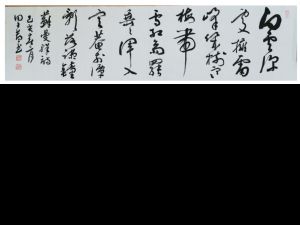 白雲深
處擁雷
峰幾樹寒
梅帶
雪紅齋罷
垂垂渾入
定菴前潭
影落疏鐘
蘇曼殊詩